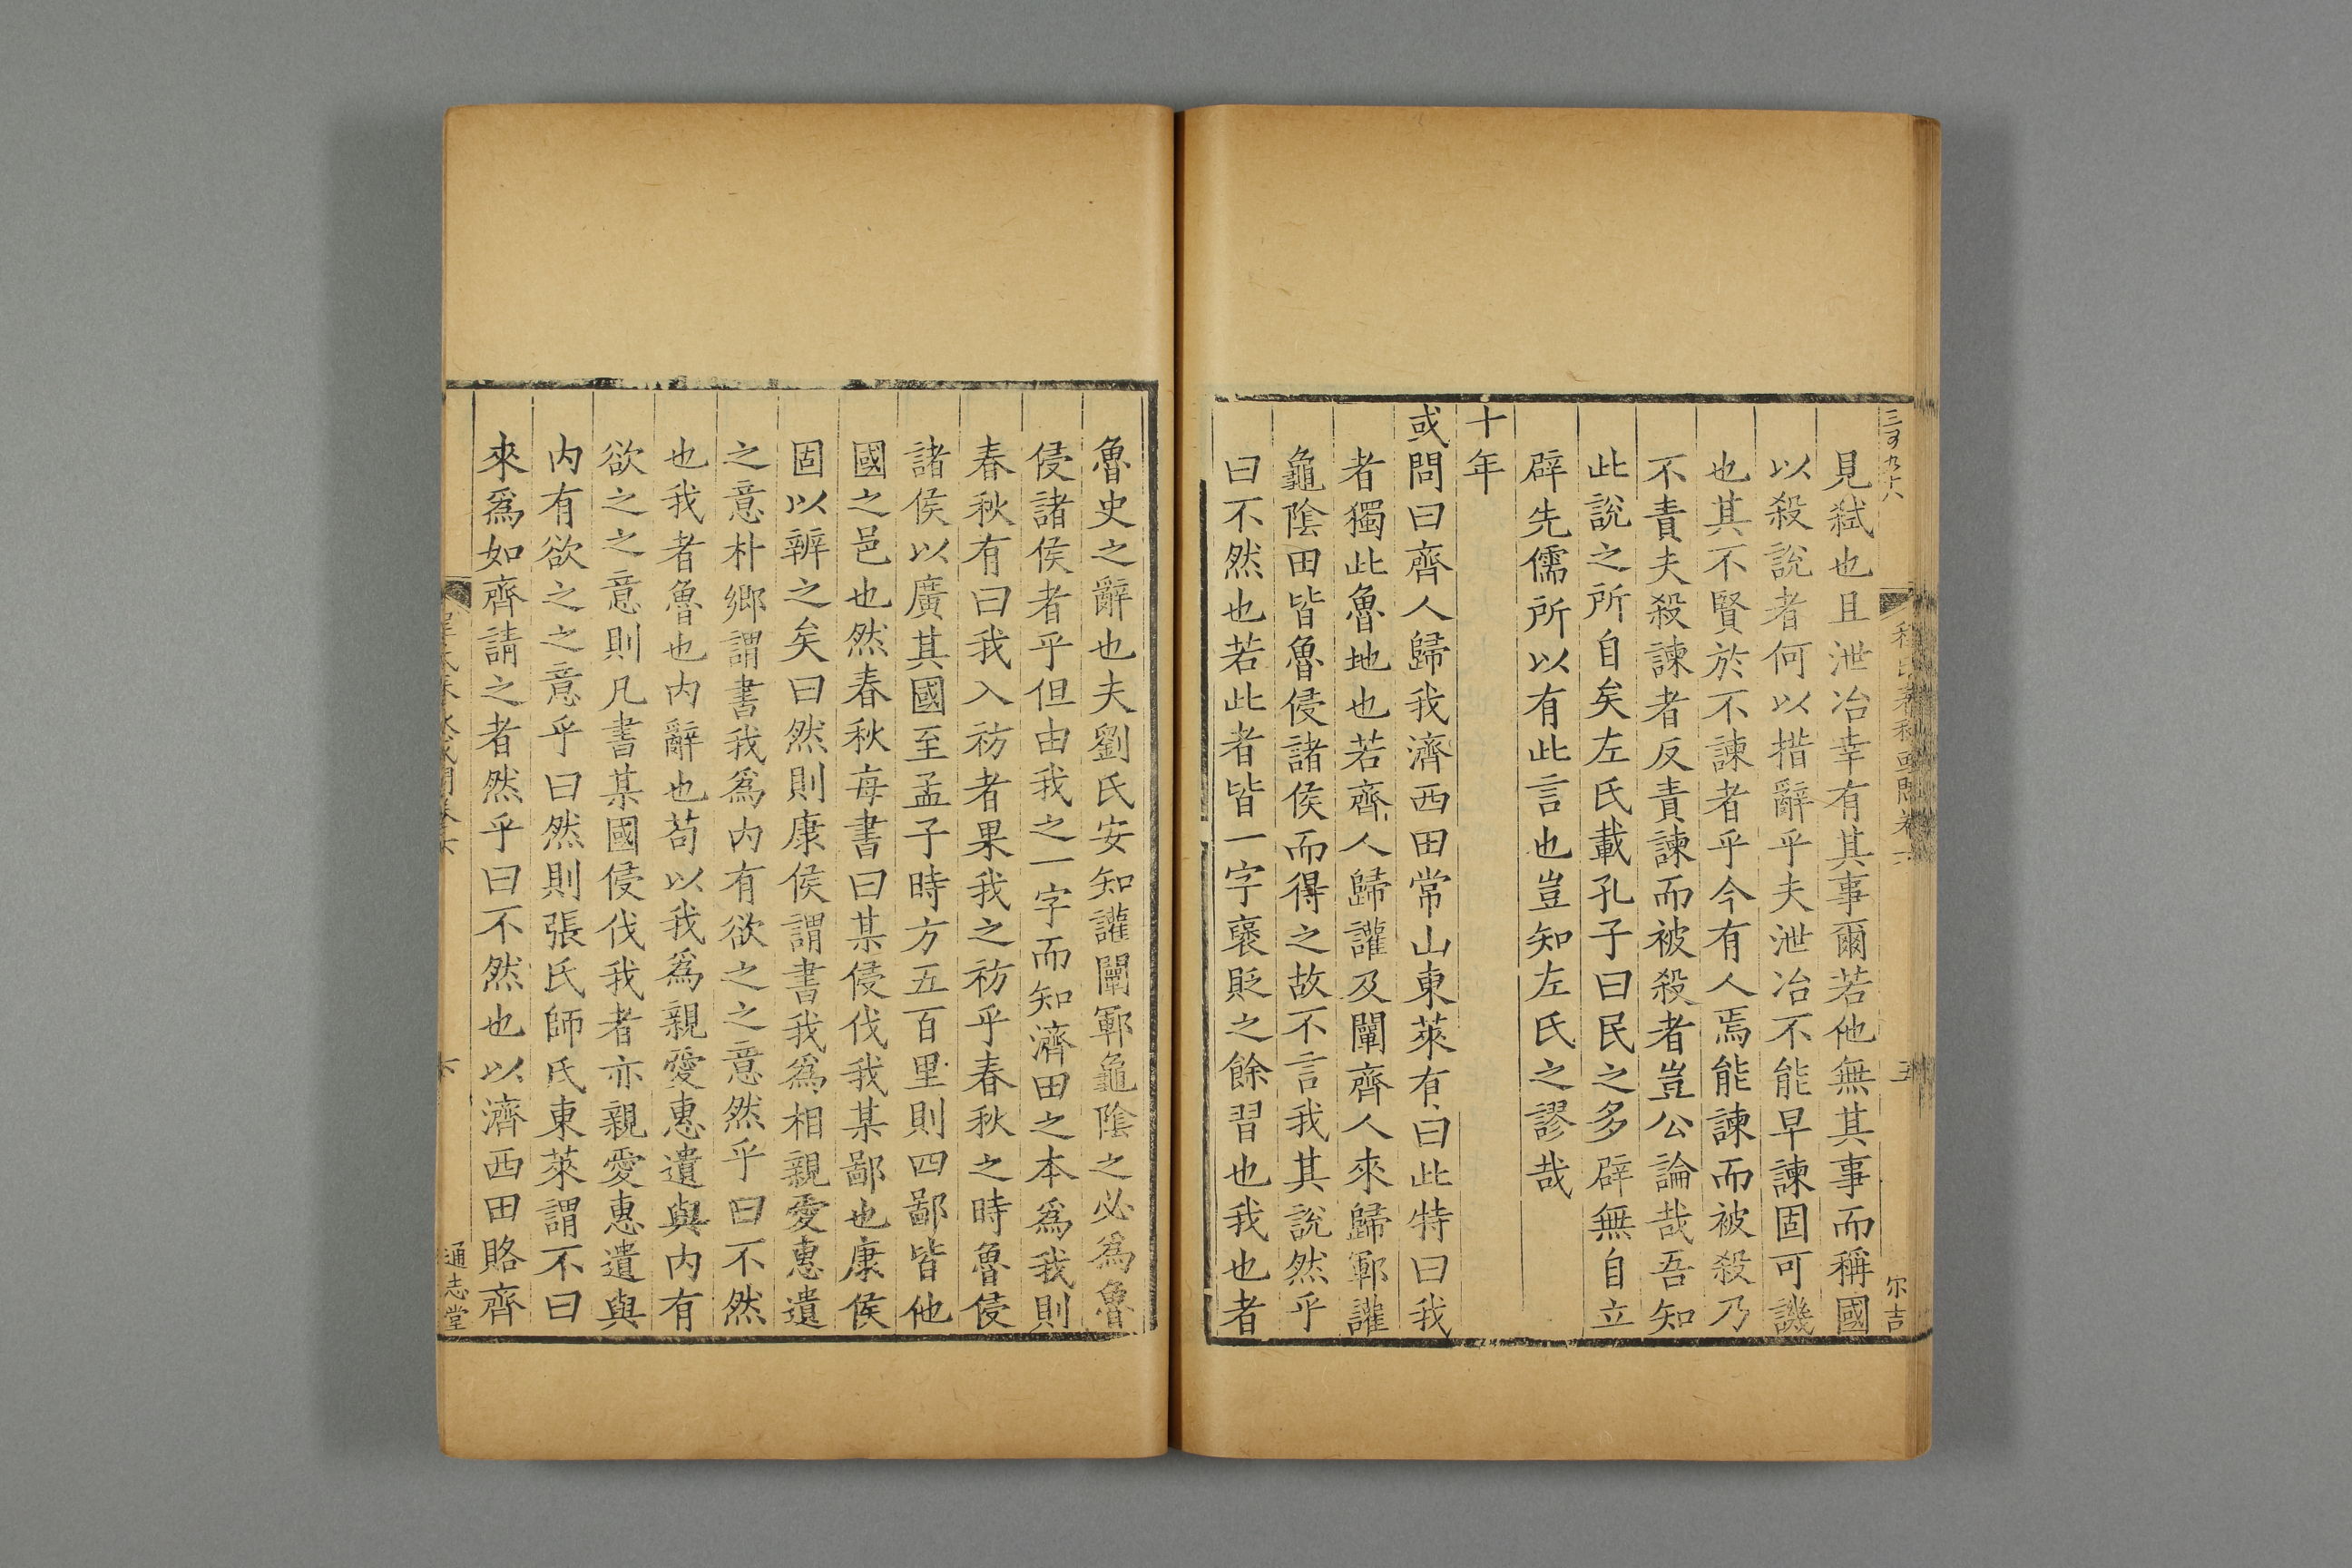 見弑也且泄冶幸有其事爾若他無其事而稱國
以殺說者何以措辭乎夫泄冶不能早諫固可譏
也其不賢於不諫者乎今有人焉能諫而被殺乃
不責夫殺諫者反責諫而被殺者豈公論哉吾知
此說之所自矣左氏載孔子曰民之多辟無自立
辟先儒所以有此言也豈知左氏之謬哉
十年
或問曰齊人歸我濟西田常山東萊有曰此特曰我
者獨此魯地也若齊人歸讙及闡齊人來歸鄆讙
龜陰田皆魯侵諸侯而得之故不言我其說然乎
曰不然也若此者皆一字襃貶之餘習也我也者
魯史之辭也夫劉氏安知讙闡鄆龜陰之必為魯
侵諸侯者乎但由我之一字而知濟田之本爲我則
春秋有曰我入祊者果我之祊乎春秋之時魯侵
諸侯以廣其國至孟子時方五百里則四鄙皆他
國之邑也然春秋每書曰某侵伐我某鄙也康侯
固以辨之矣曰然則康侯謂書我爲相親愛惠遺
之意朴鄉謂書我爲内有欲之之意然乎曰不然
也我者魯也内辭也苟以我爲親愛惠遺與内有
欲之之意則凡書某國侵伐我者亦親愛惠遺與
内有欲之之意乎曰然則張氏師氏東萊謂不曰
來爲如齊請之者然乎曰不然也以濟西田賂齊
通志堂